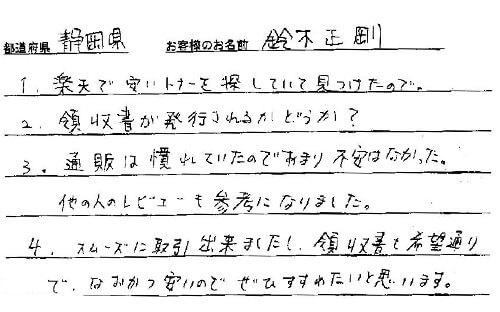 都道府県 静岡県 お客様のお名前 鈴木正剛
1. 楽天で安いトナーを探していて見つけたので。
2. 領収書が発行されるかどうか?
3. 通販は慣れていたのであまり不安はなかった。
他の人のレビューも参考になりました。
4. スムーズに取引出来ましたし、領収書も希望通り
で、なおかつ安いのでぜひすすめたいと思います。